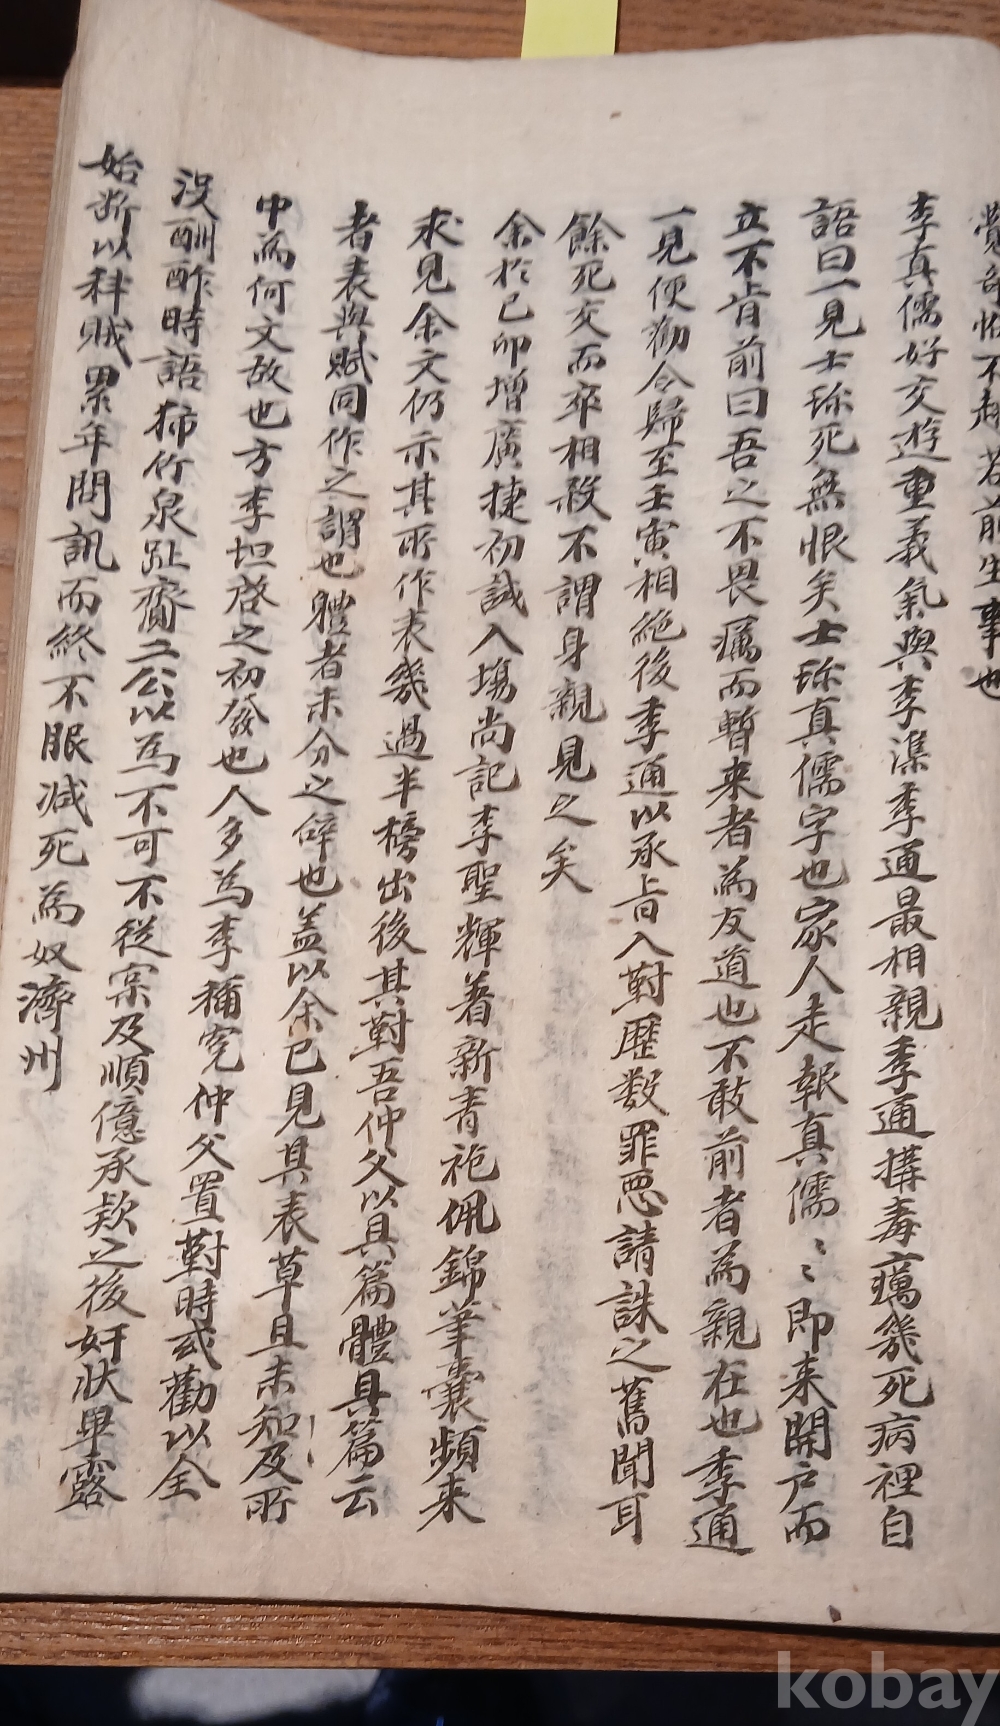 覺奇怪不起若前生事也
李真儒好交遊重義氣與李潗季通最相親季通搆毒癘幾死病裡自
語曰一見士珎死無恨矣士珎真儒字也家人走報真儒〻即来開户而
立不肯前曰吾之不畏癘而暫来者為友道也不敢前者為親在也季通
一見便勸令歸至壬寅相絶後季通以承旨入對歷数罪惡請誅之舊聞耳
餘死交而卒相殺不謂身親見之矣
余於己卯增廣捷初試入塲尚記李聖輝着新青袍佩錦筆囊頻来
求見余文仍示其所作表幾過半榜出後其對吾仲父以具篇體具篇云
者表與賦同作之謂也體者未分之辝也盖以余已見其表草且未知及所
中為何文故也方李坦啓之初發也人多為李稱寃仲父置對時或勸以全
沒酬酢時語㧊竹泉趾齋二公以為不可不從宲及順億承款之後奸狀畢露
始断以科賊累年問訊而終不服减死為奴濟州
kobay